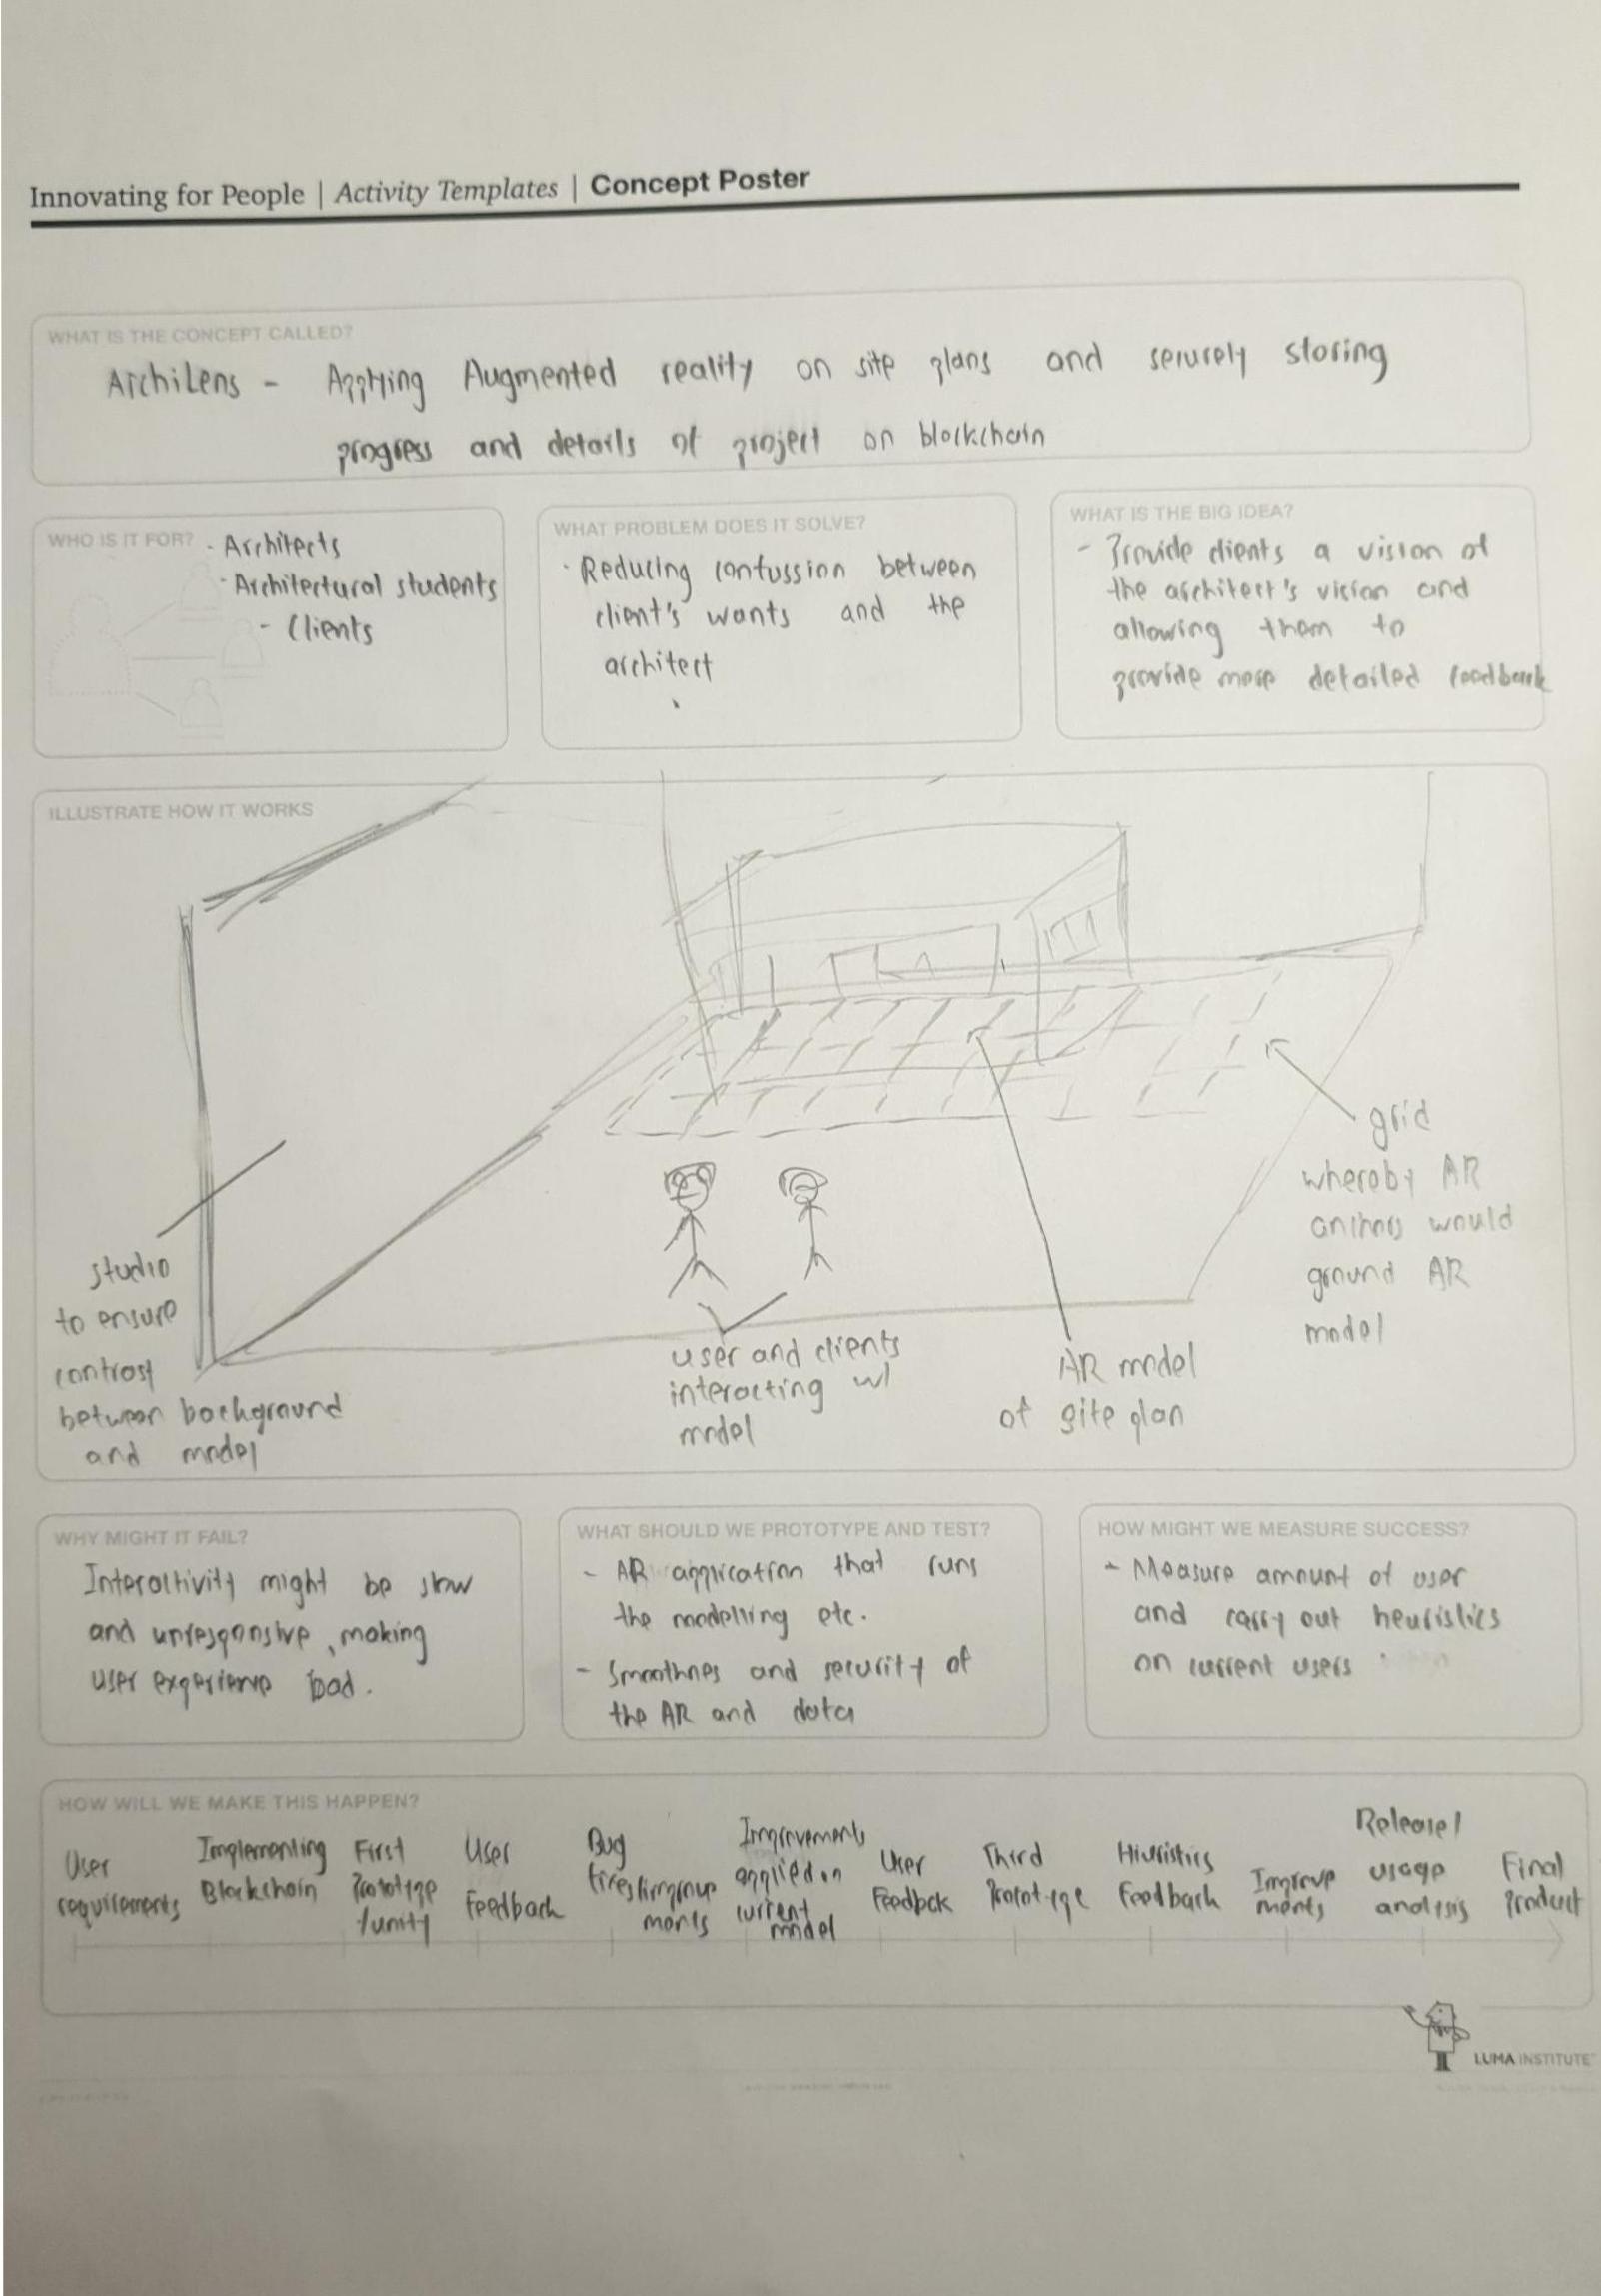 Innovating for People | Activity Templates | Concept Poster
WHAT IS THE CONCEPT CALLED?
ArchiLens - Applying Augmented reality on site plans and securely storing
progress and details of project on blockchain
WHO IS IT FOR?
- Architects
- Architectural students
- Clients
WHAT PROBLEM DOES IT SOLVE?
- Reducing confussion between
client's wants and the
architect
WHAT IS THE BIG IDEA?
- Provide clients a vision of
the architect's vision and
allowing them to
provide more detailed feedback
ILLUSTRATE HOW IT WORKS
studio
to ensure
contrast
between background
and model
user and clients
interacting w/
model
AR model
of site plan
grid
whereby AR
anchors would
ground AR
model
WHY MIGHT IT FAIL?
Interactivity might be slow
and unresponsive, making
user experience bad.
WHAT SHOULD WE PROTOTYPE AND TEST?
- AR application that runs
the modelling etc.
- Smoothnes and security of
the AR and data
HOW MIGHT WE MEASURE SUCCESS?
- Measure amount of user
and carry out heuristics
on current users
HOW WILL WE MAKE THIS HAPPEN?
User
requirements
Implementing
Blockchain
First
Prototype
/unity
User
Feedback
Bug
fixes/improve
ments
Improvements
applied on
current
model
User
Feedbck
Third
Prototype
Hiuristics
Feedback
Improve
ments
Release/
usage
analysis
Final
Product
LUMA INSTITUTE